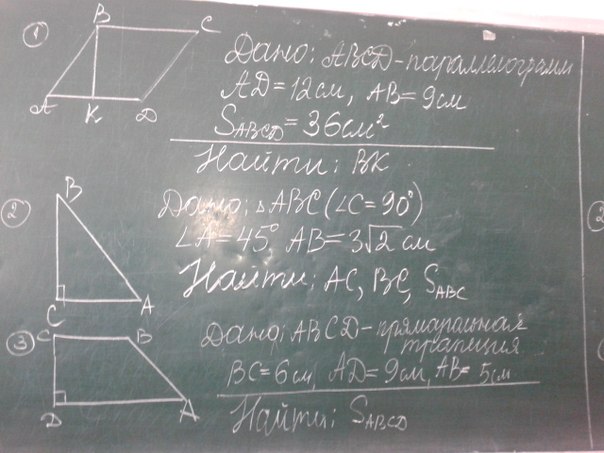 1
B
C
A
K
D
Дано: ABCD-параллелограмм
AD=12см, AB=9см
S_ABCD=36см²
Найти: BK
2
B
C
A
Дано: △ABC (∠C=90°)
∠A=45° AB=3√2 см
Найти: AC, BC, S_ABC
3
C
B
D
A
Дано: ABCD-
трапеция
BC=6см, AD=9см, AB=5см
Найти: S_ABCD